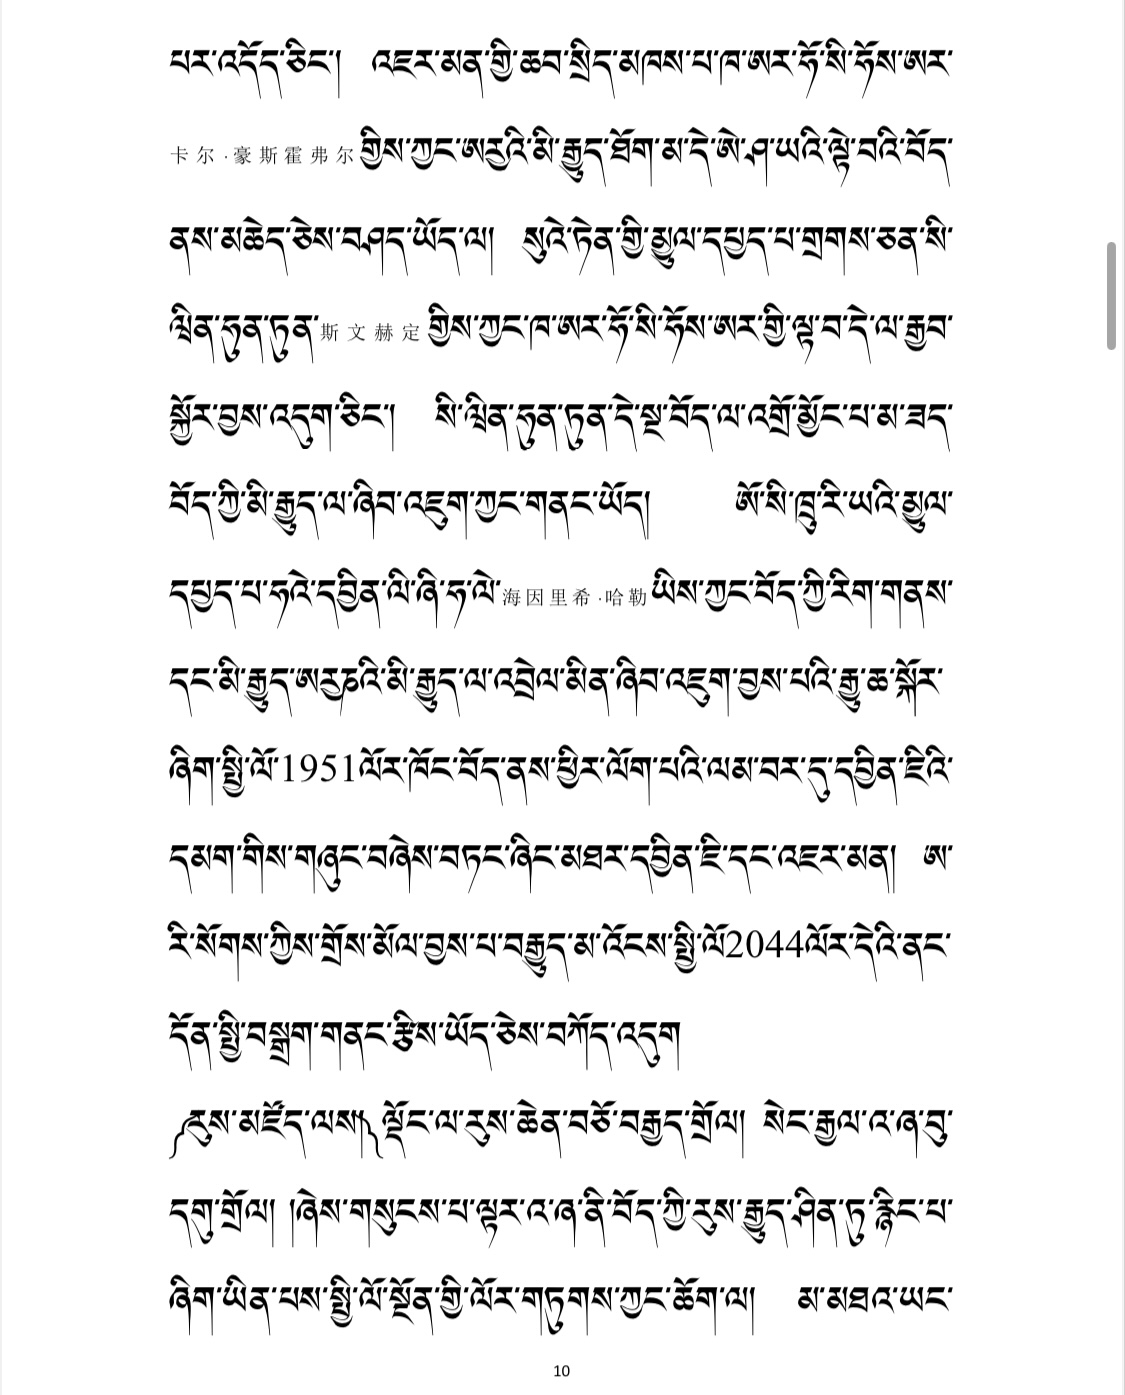 པར་འདོད་ཅིང་། འཇར་མན་གྱི་ཆབ་སྲིད་མཁས་པ་ཁ་ཨར་ཧོ་སི་ཧོས་ཨར་
卡尔·豪斯霍弗尔གྱིས་ཀྱང་ཨརུའི་མི་རྒྱུད་ཐོག་མ་དེ་ཨེ་ཤ་ཡའི་ལྟེ་བའི་བོད་
ནས་མཆེད་ཅེས་བཤད་ཡོད་ལ། སུའེ་ཏེན་གྱི་མྱུལ་དཔྱད་པ་གྲགས་ཅན་སི་
ཝིན་ཧུན་ཏུན་斯文赫定གྱིས་ཀྱང་ཁ་ཨར་ཧོ་སི་ཧོས་ཨར་གྱི་ལྟ་བ་དེ་ལ་རྒྱབ་
སྐྱོར་བྱས་འདུག་ཅིང་། སི་ཝིན་ཧུན་ཏུན་དེ་སྔ་བོད་ལ་འགྲོ་མྱོང་པ་མ་ཟད་
བོད་ཀྱི་མི་རྒྱུད་ལ་ཞིབ་འཇུག་ཀྱང་གནང་ཡོད། ཨོ་སི་ཁྲུ་རི་ཡའི་མྱུལ་
དཔྱད་པ་ཧའེ་དབྱིན་ལི་ཞི་ཧ་ལེ་海因里希·哈勒ཡིས་ཀྱང་བོད་ཀྱི་རིག་གནས་
དང་མི་རྒྱུད་ཨརྱའི་མི་རྒྱུད་ལ་འབྲེལ་མིན་ཞིབ་འཇུག་བྱས་པའི་རྒྱུ་ཆ་སྐོར་
ཞིག་སྤྱི་ལོ་1951ལོར་ཁོང་བོད་ནས་ཕྱིར་ལོག་པའི་ལམ་བར་དུ་དབྱིན་ཇིའི་
དམག་གིས་གཞུང་བཞེས་བཏང་ཞིང་མཐར་དབྱིན་ཇི་དང་འཇར་མན། ཨ་
རི་སོགས་ཀྱིས་གྲོས་མོལ་བྱས་པ་བརྒྱུད་མ་འོངས་སྤྱི་ལོ2044ལོར་དེའི་ནང་
དོན་སྤྱི་བསྒྲག་གནང་རྩིས་ཡོད་ཅེས་བཀོད་འདུག
༼རུས་མཛོད་ལས།༽ལྡོང་ལ་རུས་ཆེན་བཅོ་བརྒྱད་གྲོལ། སེང་རྒྱལ་འ་ཞ་བུ་
དགུ་གྲོལ། །ཞེས་གསུངས་པ་ལྟར་འ་ཞ་ནི་བོད་ཀྱི་རུས་རྒྱུད་ཤིན་ཏུ་རྙིང་པ་
ཞིག་ཡིན་པས་སྤྱི་ལོ་སྔོན་གྱི་ལོར་གཏུགས་ཀྱང་ཆོག་ལ། མ་མཐའ་ཡང་
10